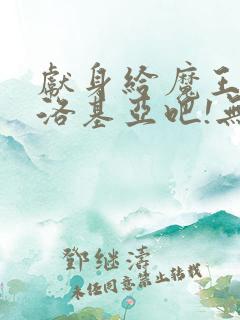 獻身給魔王
洛基亞吧!無
鄧继濤
未经同意禁止转载